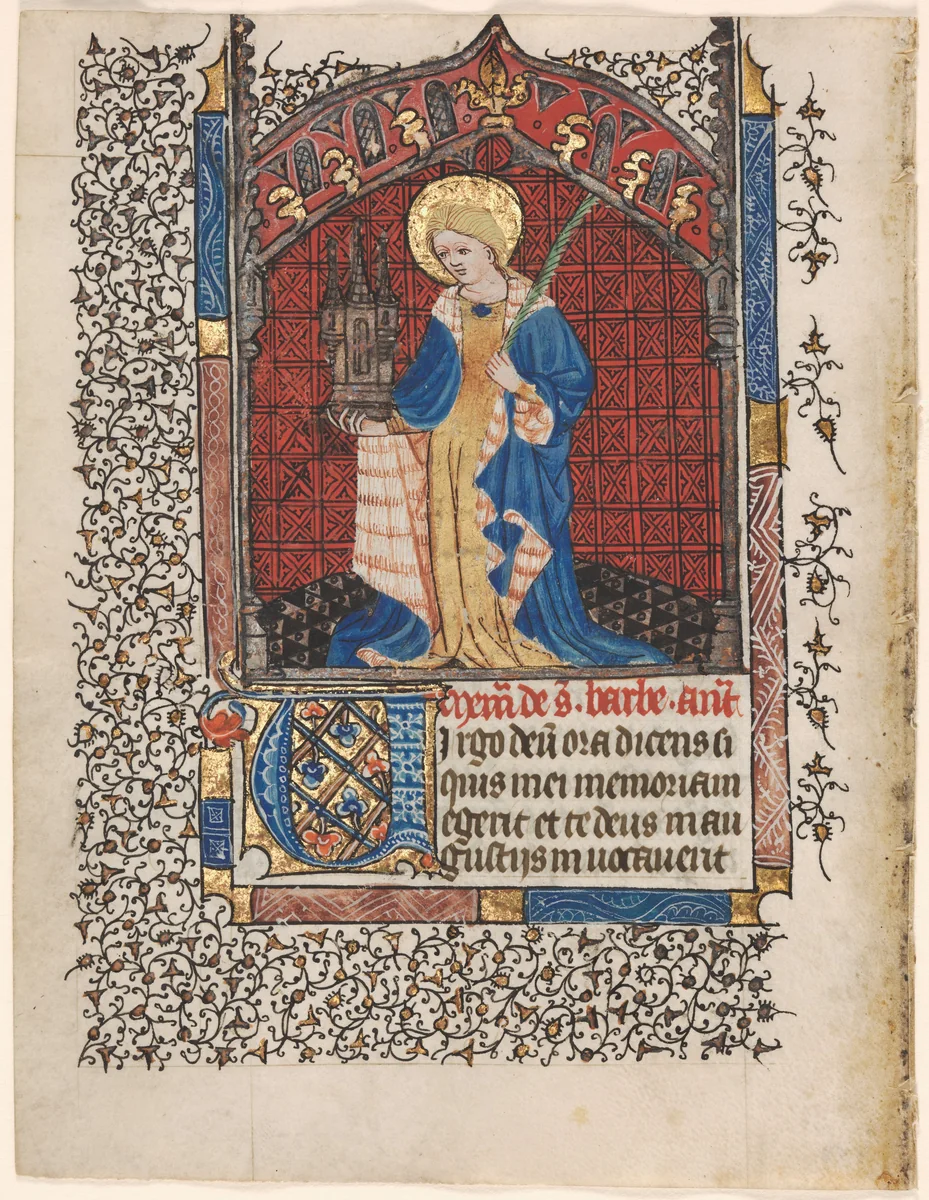 de s̃. barbe. ant̃
VIrgo deũ ora dicens si
quis mei memoriam
egerit et te deus in an
gustijs inuocauerit